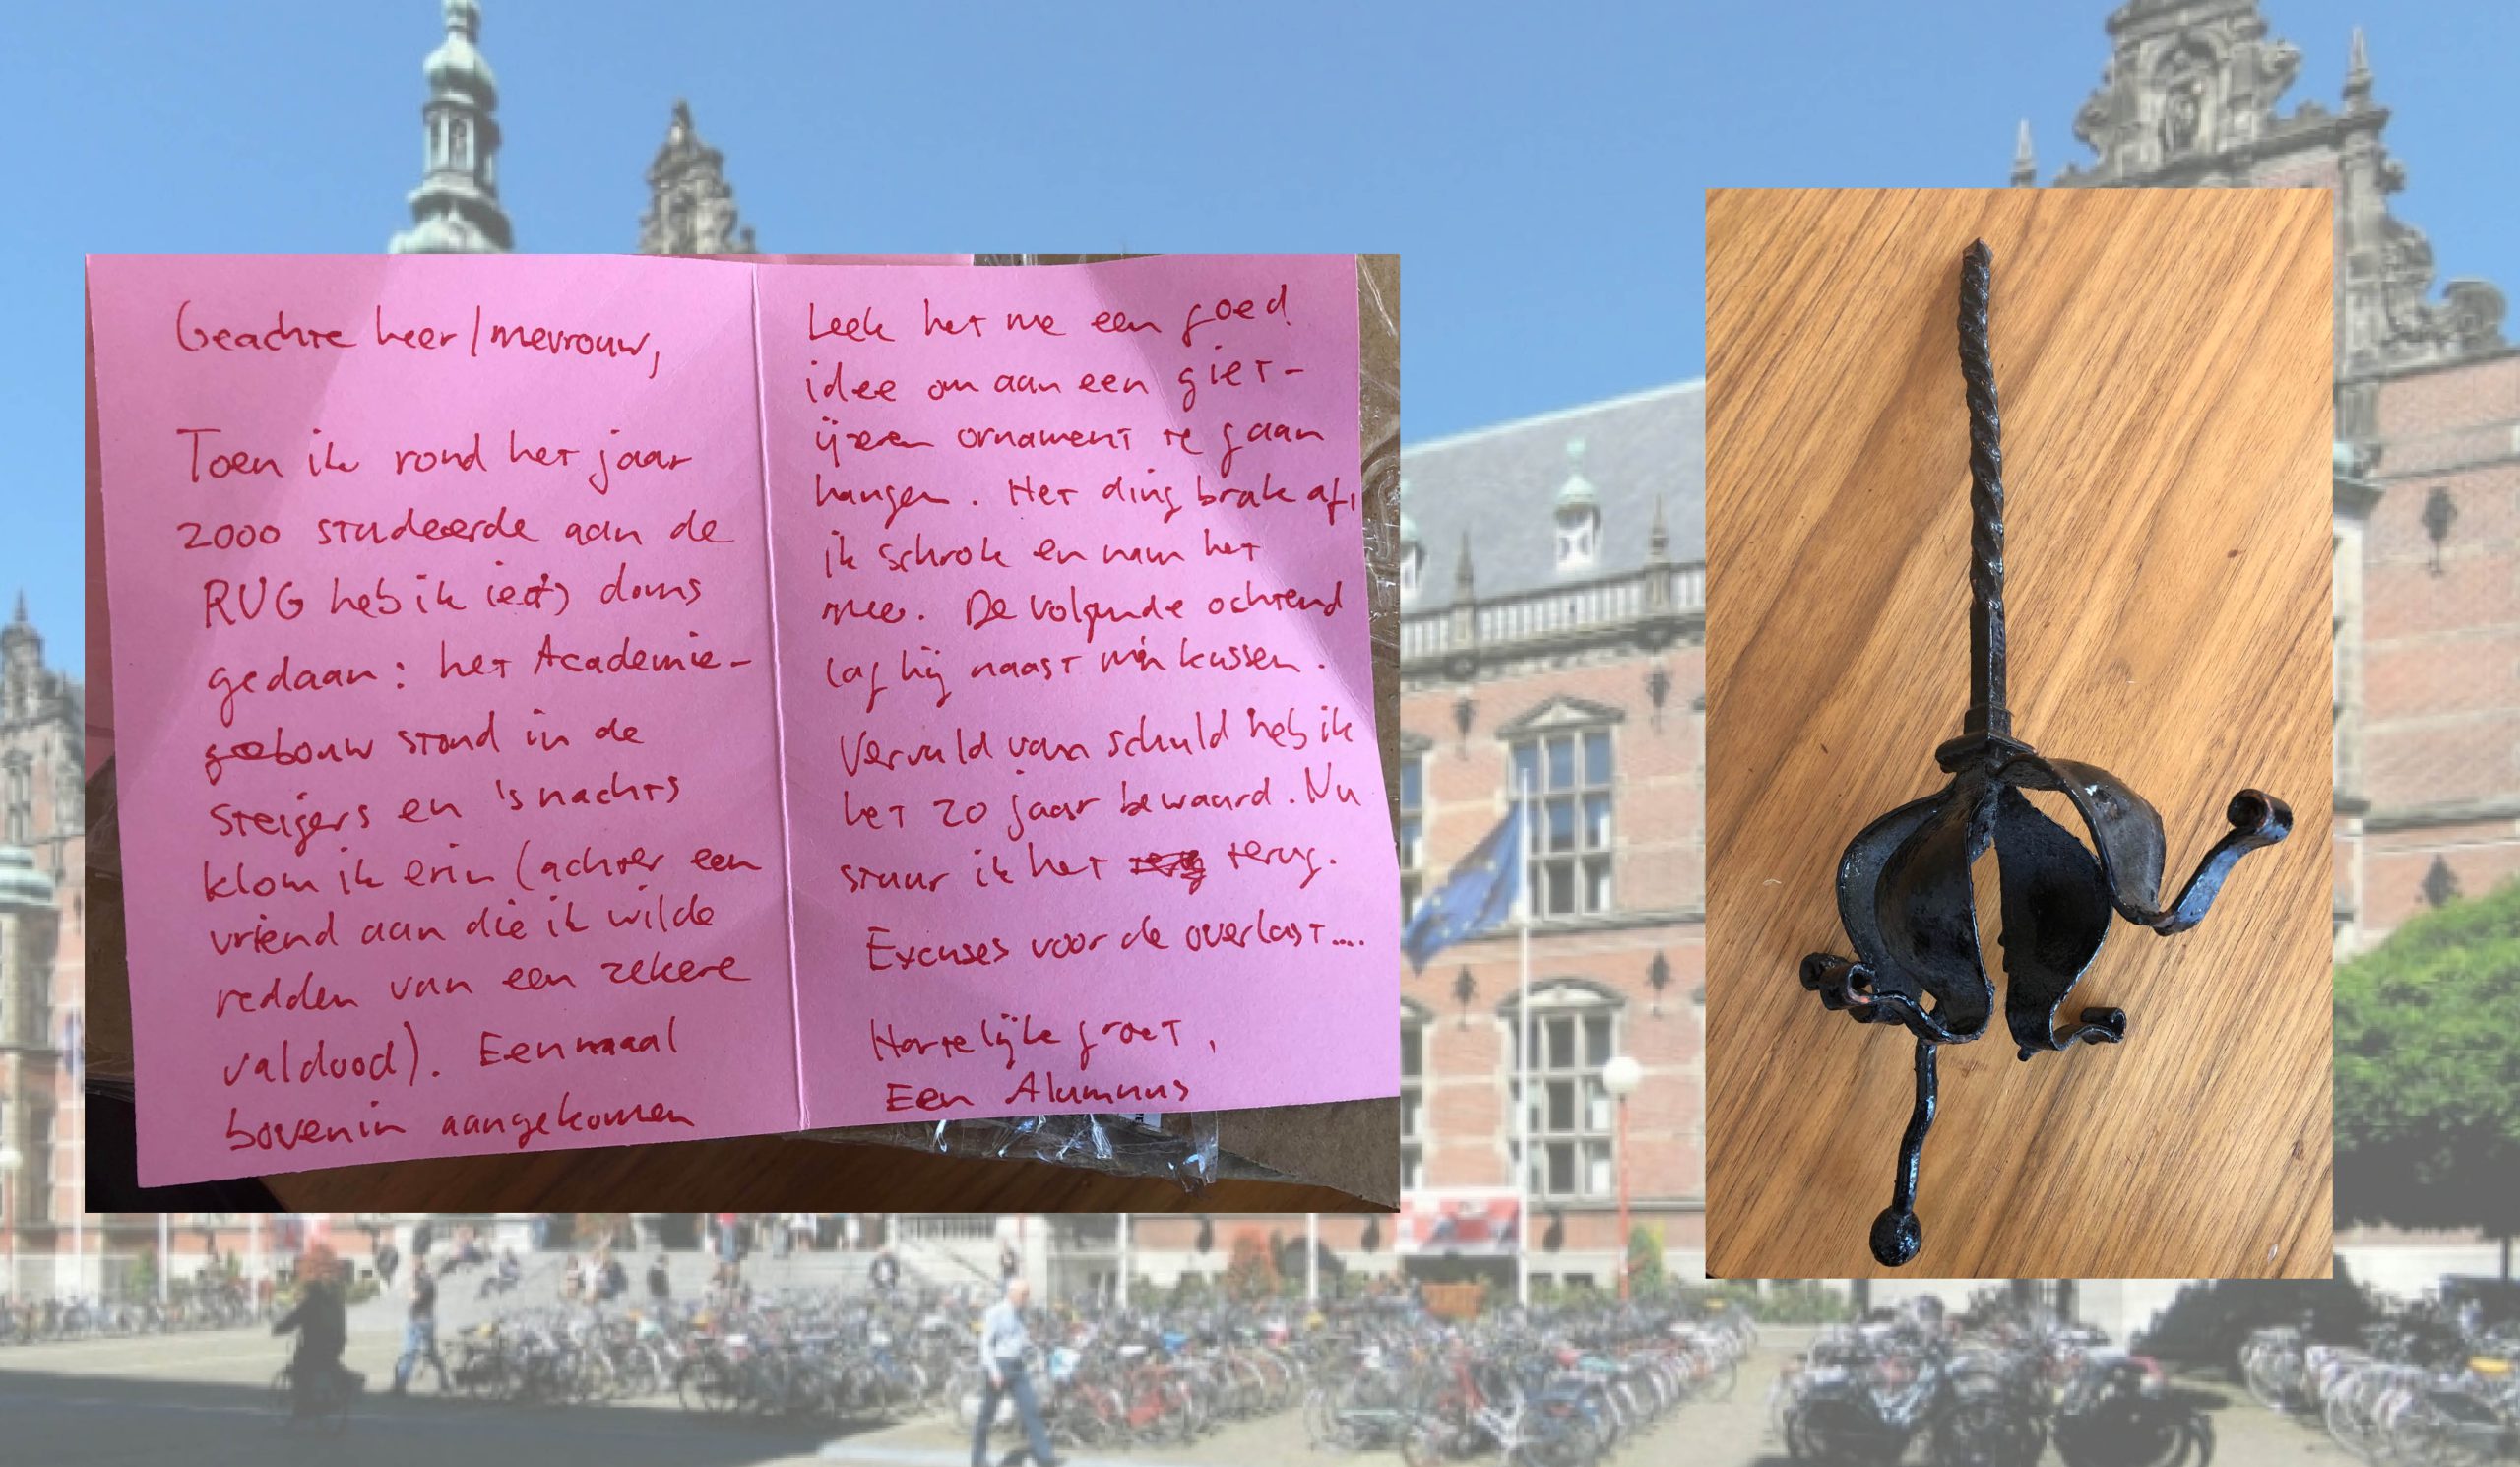 Geachte heer/mevrouw,
Toen ik rond het jaar
2000 studeerde aan de
RUG heb ik iets doms
gedaan: het Academie-
gebouw stond in de
steigers en 's nachts
klom ik erin (achter een
vriend aan die ik wilde
redden van een zekere
valdood). Eenmaal
bovenin aangekomen
Leek het me een goed
idee om aan een giet-
ijzeren ornament te gaan
hangen. Het ding brak af,
ik schrok en nam het
mee. De volgende ochtend
lag hij naast mijn kussen.
Vervuld van schuld heb ik
het 20 jaar bewaard. Nu
stuur ik het terug.
Excuses voor de overlast....
Hartelijke groet,
Een Alumnus